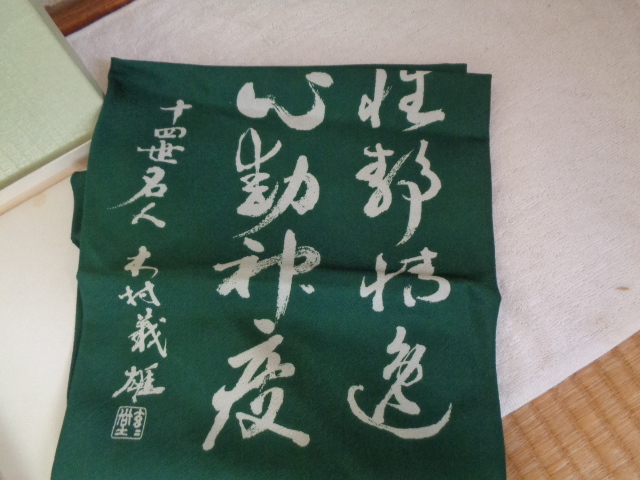 性靜情逸
心動神疲
十四世名人 木村義雄